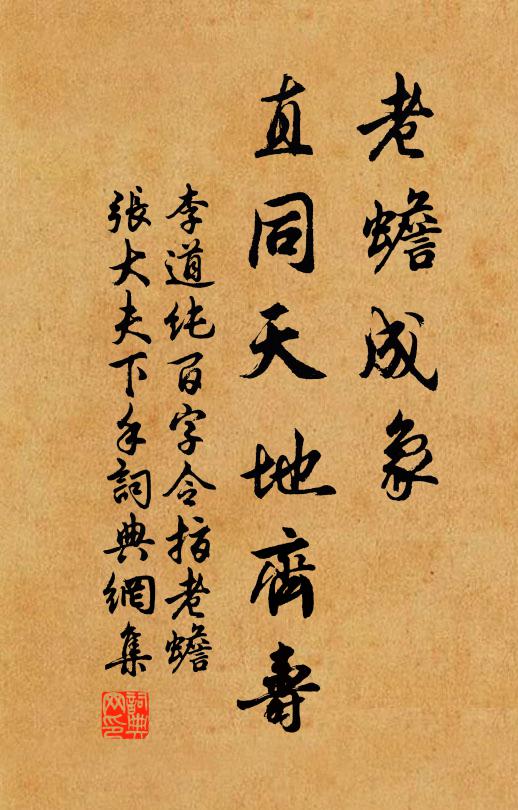 老蟾成象
直同天地齊壽
李道純百字令指老蟾
張大夫下手詞典網集
詞典網印